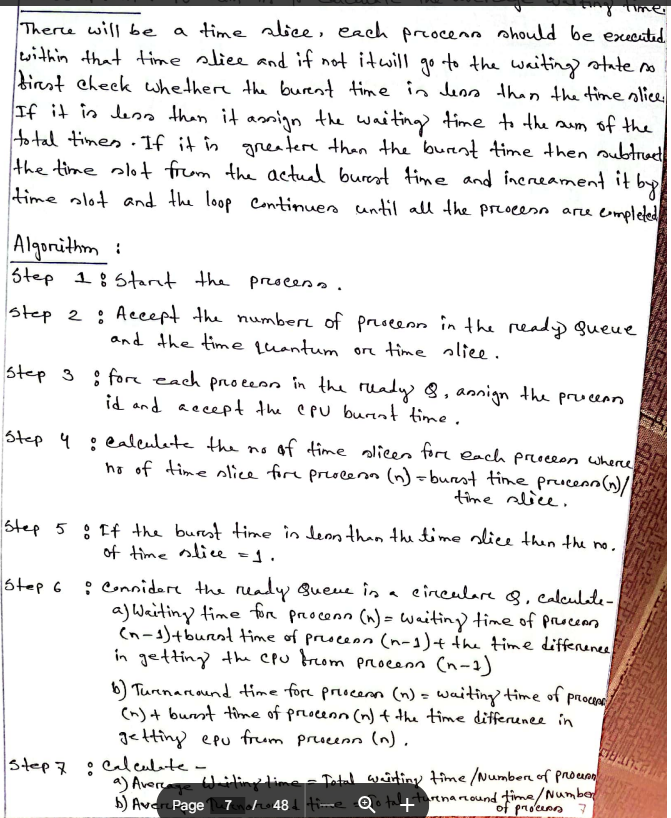 waiting time.
There will be a time slice, each process should be executed
within that time slice and if not it will go to the waiting state so
first check whether the burst time is less than the time slice.
If it is less than it assign the waiting time to the sum of the
total times. If it is greater than the burst time then subtract
the time slot from the actual burst time and increament it by
time slot and the loop continues until all the process are completed
Algorithm :
Step 1 : Start the process.
Step 2 : Accept the number of process in the ready Queue
and the time quantum or time slice.
Step 3 : for each process in the ready Q, assign the process
id and accept the CPU burst time.
Step 4 : calculate the no of time slices for each process where
no of time slice for process (n) = burst time process(n)/
time slice.
Step 5 : If the burst time is less than the time slice then the no.
of time slice = 1.
Step 6 : Consider the ready Queue is a circular Q, calculate-
a) Waiting time for process (n) = waiting time of process
(n-1)+burst time of process (n-1)+ the time difference
in getting the CPU from process (n-1)
b) Turnaround time for process (n) = waiting time of process
(n) + burst time of process (n) + the time difference in
getting cpu from process (n).
Step 7 : Calculate -
a) Average Waiting time = Total waiting time /Number of process
b) time = Total turnaround time/Number
of process 7
Page 7 / 48 - +